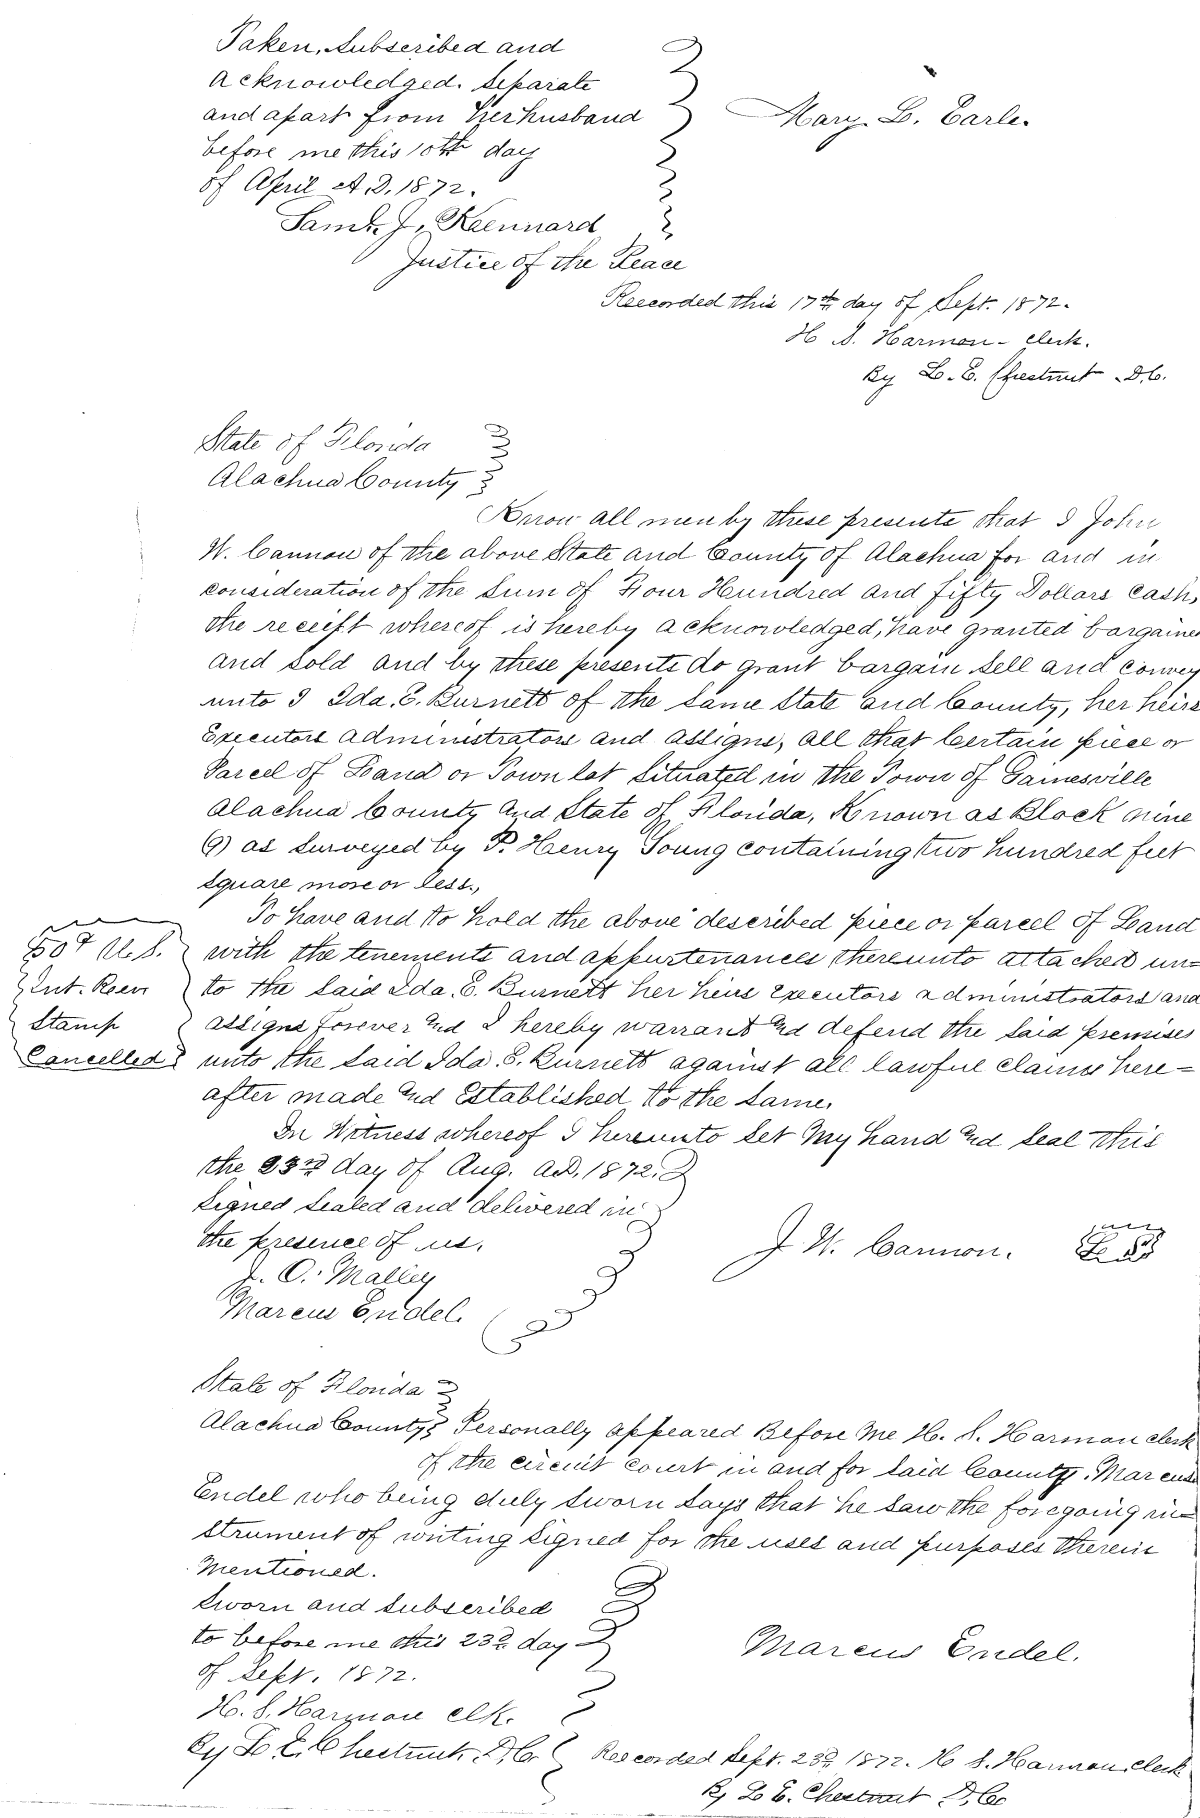 Taken, Subscribed and
acknowledged. Separate
and apart from her husband
before me this 10th day
of April A.D. 1872.
Mary L. Earle.
Saml. J. Kennard
Justice of the Peace
Recorded this 17th day of Sept. 1872.
H S. Harmon - clerk.
By L. E. Chestnut D.C.
State of Florida
Alachua County
Know all men by these presents that I John
W. Cannon of the above State and County of Alachua for and in
consideration of the Sum of Four Hundred and fifty Dollars Cash,
the receift whereof is hereby acknowledged, have granted bargained
and sold and by these presents do grant bargain sell and convey
unto I Ida. E. Burnett of the same State and County, her heirs
Executors administrators and assigns, all that certain piece or
Parcel of Land or Town lot Situated in the Town of Gainesville
Alachua County and State of Florida, Known as Block nine
(9) as surveyed by P. Henry Young containing two hundred feet
square more or less.,
To have and to hold the above described piece or parcel of Land
with the tenements and appurtenances thereunto attached un=
to the said Ida. E. Burnett her heirs executors administrators and
assigns forever and I hereby warrant and defend the said premises
unto the said Ida. E. Burnett against all lawful claims here=
after made and Established to the same.
50¢ U.S.
Int. Reev
Stamp
Cancelled
In Witness whereof I hereunto set my hand and seal this
the 23rd day of Aug. A.D. 1872.
Signed sealed and delivered in
the presence of us.
J. W. Cannon. L S
J. O. Malley
Marcus Endel.
State of Florida
Alachua County Personally appeared Before Me H. S. Harmon clerk
of the circuit court in and for said County. Marcus
Endel who being duly sworn says that he saw the foregoing in=
strument of writing signed for the uses and purposes therein
mentioned.
Sworn and subscribed
to before me this 23d day
of Sept. 1872.
Marcus Endel.
H. S. Harmon clk.
By L. E. Chestnut. D.C.
Reccorded Sept. 23d 1872. H S. Harmon. clerk
By L E. Chestnut D.C.